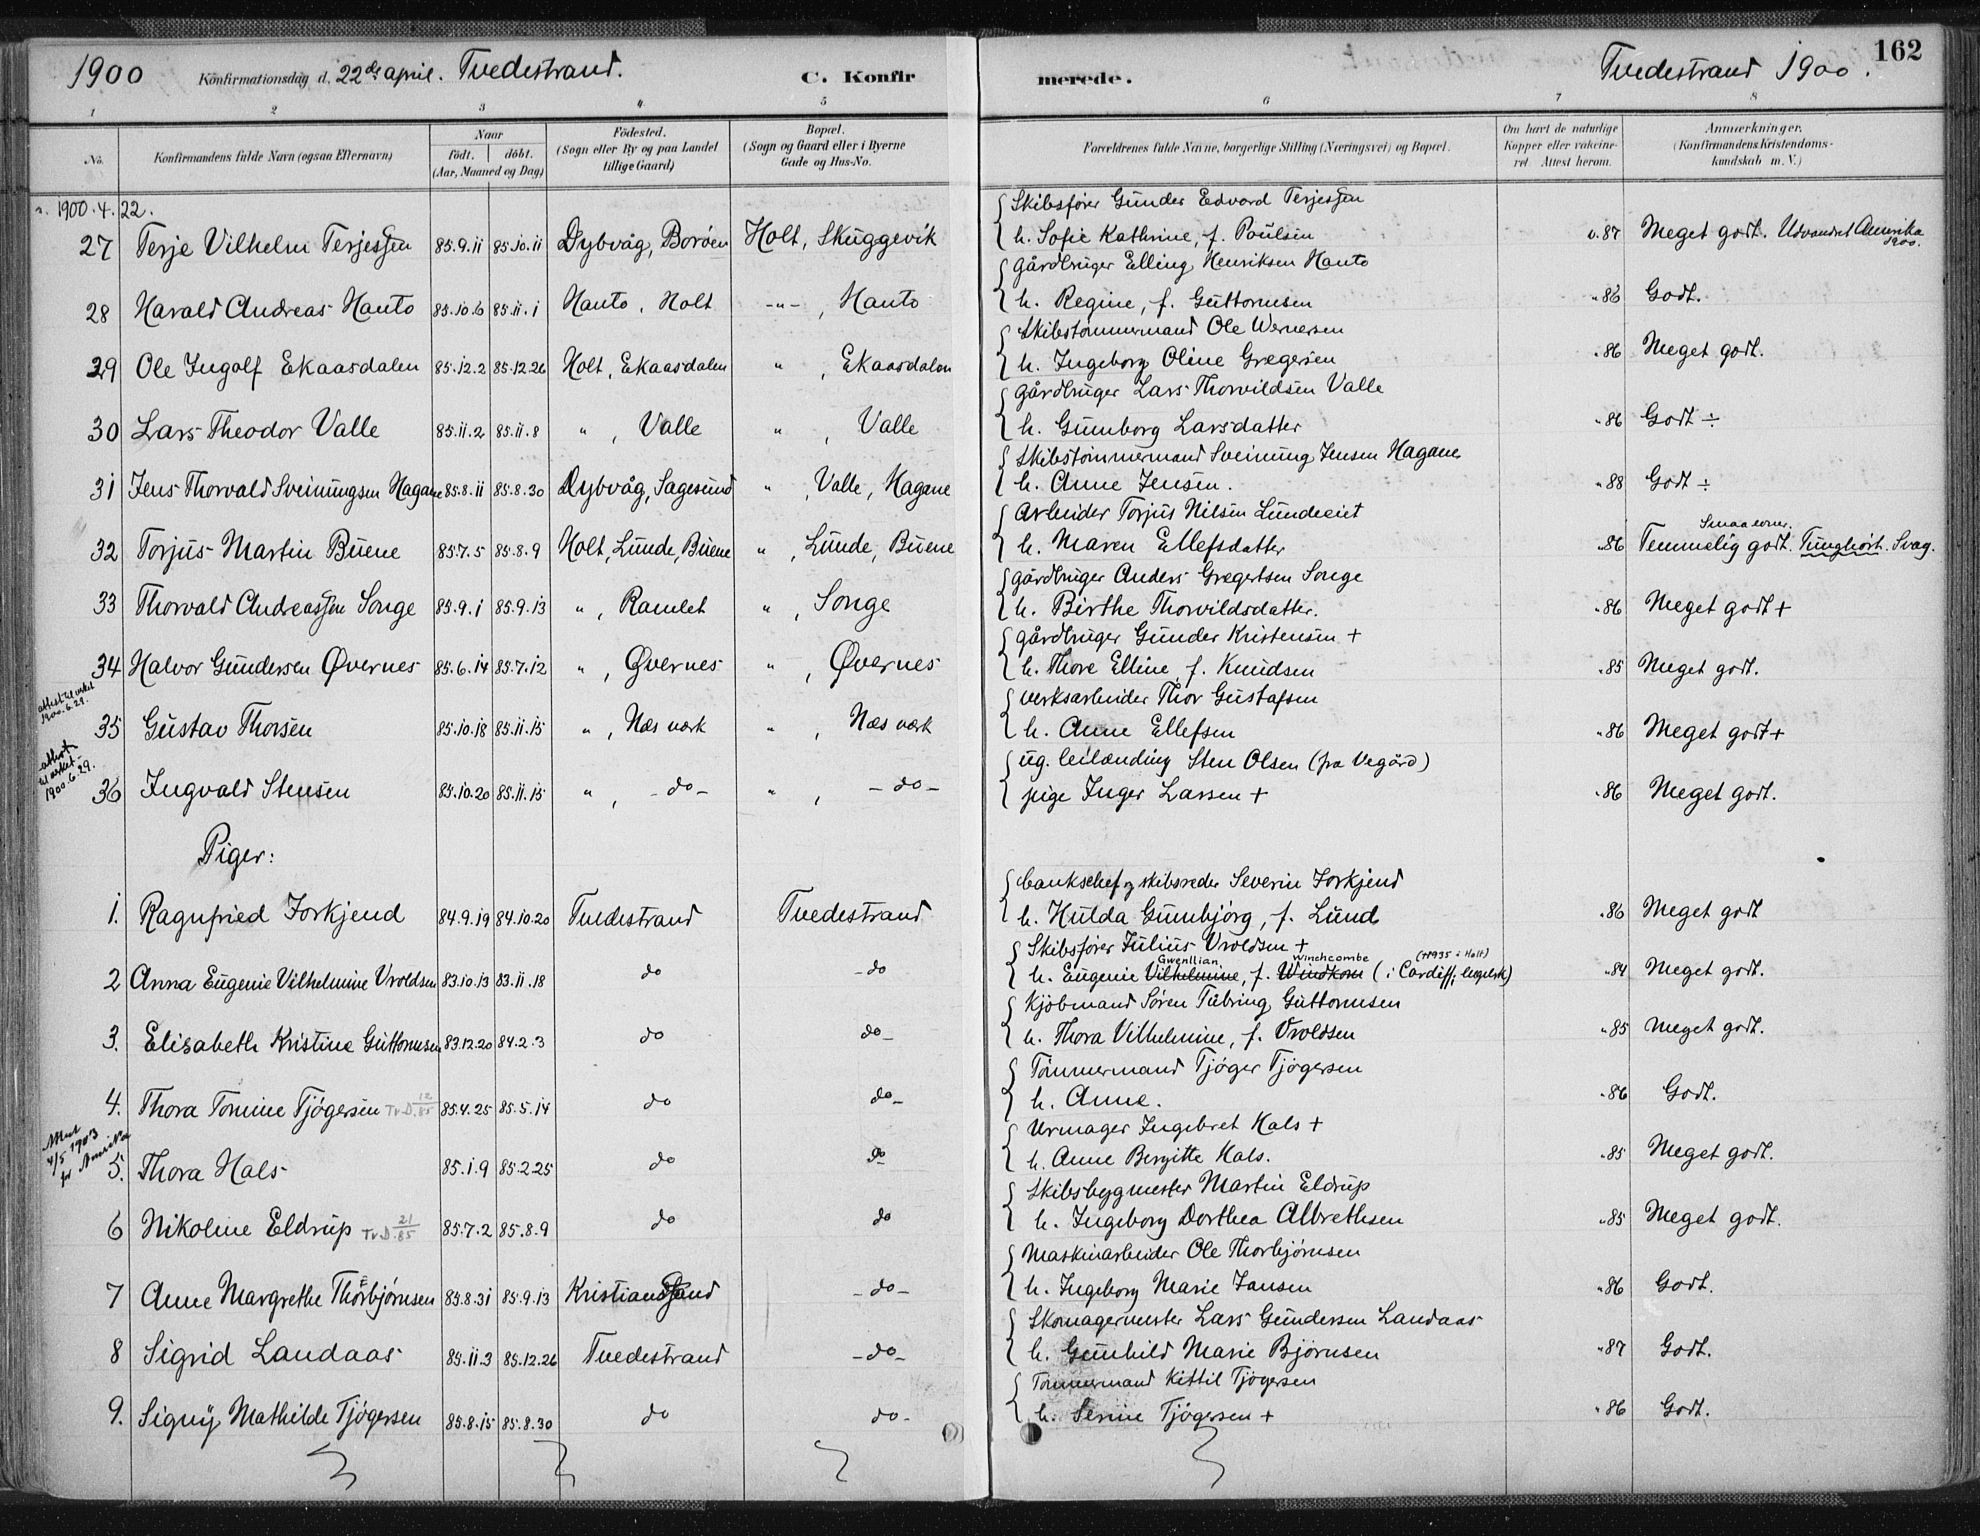 1900 Konfirmationsdag d. 22de april. Tvedestrand. C. Konfirmerede. Tvedestrand 1900. 162
1 2 3 4 5 6 7 8
No. Konfirmandens fulde Navn (ogsaa Efternavn) Naar født. døbt. (Aar, Maaned og Dag) Fødested. (Sogn eller By og paa Landet tillige Gaard) Bopæl. (Sogn og Gaard eller i Byerne Gade og Hus-No. Forældrenes fulde Navne, borgerlige Stilling (Næringsvei) og Bopæl. Om havt de naturlige Kopper eller vakcineret Attest herom. Anmærkninger. (Konfirmandens Kristendomskundskab m. V.)
1900.4.22.
Skibsfører Gunder Edvard Terjessen
27 Terje Vilhelm Terjessen 85.9.11 85.10.11 Dybvåg, Borøen Holt, Skuggevik h. Sofie Kathrine, f. Poulsen v. 87 Meget godt. Udvandret Amerika 1900.
gårdbruger Elling Henriksen Hanto
28 Harald Andreas Hanto 85.10.6 85.11.1 Hanto, Holt -"-, Hanto h. Regine, f. Guttormsen "86 Godt.
Skibstømmermand Ole Wernersen
29 Ole Ingolf Ekaasdalen 85.12.2 85.12.26 Holt, Ekaasdalen ", Ekaasdalen h. Ingeborg Oline Gregersen "86 Meget godt.
gårdbruger Lars Thorvildsen Valle
30 Lars Theodor Valle 85.11.2 85.11.8 ", Valle ", Valle h. Gunborg Larsdatter "86 Godt ÷
Skibstømmermand Sveinung Jensen Hagane
31 Jens Thorvald Sveinungsen Hagane 85.8.11 85.8.30 Dybvåg, Sagesund ", Valle, Hagane h. Anne Jensen. "88 Godt ÷
arbeider Torjus Nilsen Lundereiet
32 Torjus Martin Buene 85.7.5 85.8.9 Holt, Lunde, Buene ", Lunde, Buene h. Maren Ellefsdatter "86 Temmelig godt. Tunghørt. Svag.
gårdbruger Anders Gregertsen Songe
33 Thorvald Andreassen Songe 85.9.1 85.9.13 ", Ramlet ", Songe h. Birthe Thorvildsdatter. "86 Meget godt +
gårdbruger Gunder Kristensen +
34 Halvor Gundersen Øvernes 85.6.14 85.7.12 ", Øvernes ", Øvernes h. Thore Elline, f. Knudsen "85 Meget godt.
attest til verket 1900.6.29.
verksarbeider Thor Gustafsen
35 Gustav Thorsen 85.10.18 85.11.15 ", Næs værk ", Næs værk h. Anne Ellefsen "86 Meget godt +
attest til verket 1900.6.29.
ug. leilænding Sten Olsen (fra Vegård)
36 Ingvald Stensen 85.10.20 85.11.15 ", -do- ", -do- pige Inger Larsen + "86 Meget godt.
Piger:
bankschef og skibsreder Severin Jorkjend
1. Ragnfried Jorkjend 84.9.19 84.10.20 Tvedestrand Tvedestrand h. Hulda Gunbjørg, f. Lund "86 Meget godt
Skibsfører Julius Vroldsen +
Gwenllian Winchcombe (+1935 i Holt)
2 Anna Eugenie Vilhelmine Vroldsen 83.10.13 83.11.18 do -do h. Eugenie Vilhelmine, f. Windkom (i Cardiff, engelsk) "84 Meget godt.
Kjøbmand Søren Tübring Guttormsen
3. Elisabeth Kristine Guttormsen 83.12.20 84.2.3 do do- h. Thora Vilhelmine, f. Vroldsen "85 Meget godt.
Tømmermand Tjøger Tjøgersen
4. Thora Tomine Tjøgersen Tv.D. 12/85 85.4.25 85.5.14 do do- h. Anne. "86 Godt.
4/5 1903 Amerika
Urmager Ingebret Hals +
5. Thora Hals 85.1.9 85.2.25 do do h. Anne Bergitte Hals. "85 Meget godt.
Skibsbygmester Martin Eldrup
6 Nikoline Eldrup Tv.D. 21/85 85.7.2 85.8.9 do do h. Ingeborg Dorthea Albrethsen "85 Meget godt.
Maskinarbeider Ole Thorbjørnsen
7 Anne Margrethe Thorbjørnsen 85.8.31 85.9.13 Kristiansand -do- h. Ingeborg Marie Jansen "86 Godt.
Skomagermester Lars Gundersen Landaas
8 Sigrid Landaas 85.11.3 85.12.26 Tvedestrand -do- h. Gunhild Marie Bjørnsen "87 Godt.
Tømmermand Kittil Tjøgersen
9. Signy Mathilde Tjøgersen 85.8.15 85.8.30 do do- h. Serine Tjøgersen + "86 Godt.